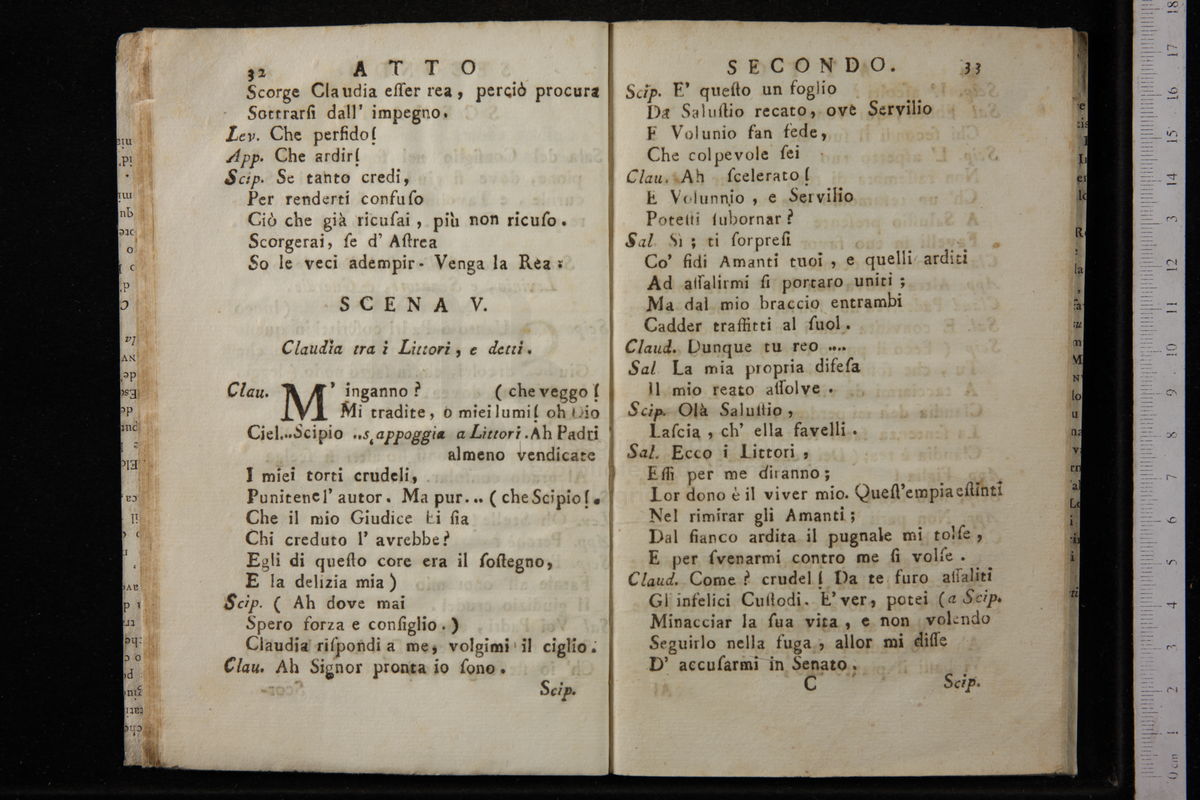 32 ATTO
Scorge Claudia eſſer rea, perciò procura
Sottrarſi dall' impegno.
Lev. Che perfido!
App. Che ardir!
Scip. Se tanto credi,
Per renderti confuſo
Ciò che già ricuſai, più non ricuſo.
Scorgerai, ſe d' Aſtrea
So le veci adempir- Venga la Rea:
SCENA V.
Claudia tra i Littori, e detti.
Clau. M' inganno? ( che veggo!
Mi tradite, o miei lumi! oh Dio
Ciel...Scipio ..s'appoggia a Littori. Ah Padri
almeno vendicate
I miei torti crudeli,
Punitene l' autor. Ma pur... ( che Scipio!.
Che il mio Giudice ti ſia
Chi creduto l' avrebbe?
Egli di queſto core era il ſoſtegno,
E la delizia mia )
Scip. ( Ah dove mai
Spero forza e conſiglio.)
Claudia riſpondi a me, volgimi il ciglio.
Clau. Ah Signor pronta io ſono.
Scip.
SECONDO. 33
Scip. E' queſto un foglio
Da Saluſtio recato, ove Servilio
E Volunio fan fede,
Che colpevole ſei
Clau. Ah ſcelerato!
E Volunnio, e Servilio
Poteſti ſubornar?
Sal. Sì; ti ſorpreſi
Co' fidi Amanti tuoi, e quelli arditi
Ad aſſalirmi ſi portaro uniti;
Ma dal mio braccio entrambi
Cadder traffitti al ſuol.
Claud. Dunque tu reo ....
Sal La mia propria difeſa
Il mio reato aſſolve.
Scip. Olà Saluſtio,
Laſcia, ch' ella favelli.
Sal. Ecco i Littori,
Eſſi per me diranno;
Lor dono è il viver mio. Queſt'empia eſtinti
Nel rimirar gli Amanti;
Dal fianco ardita il pugnale mi tolſe,
E per ſvenarmi contro me ſi volſe.
Claud. Come? crudel! Da te furo aſſaliti
Gl infelici Cuſtodi. E' ver, potei (a Scip.
Minacciar la ſua vita, e non volendo
Seguirlo nella fuga, allor mi diſſe
D' accuſarmi in Senato.
C Scip.